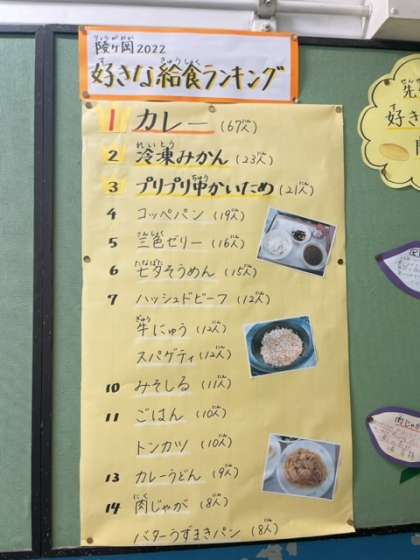 りょうがおか
陵ヶ岡2022
す きゅうしょく
好きな給食ランキング
1 カレー (67人)
2 冷凍みかん (23人)
3 プリプリ中かいため (21人)
4 コッペパン (19人)
5 三色ゼリー (16人)
6 七夕そうめん (15人)
7 ハッシュドビーフ (12人)
牛にゅう (12人)
スパゲティ (12人)
10 みそしる (11人)
11 ごはん (10人)
トンカツ (10人)
13 カレーうどん (9人)
14 肉じゃが (8人)
バターうずまきパン (8人)
先
好き